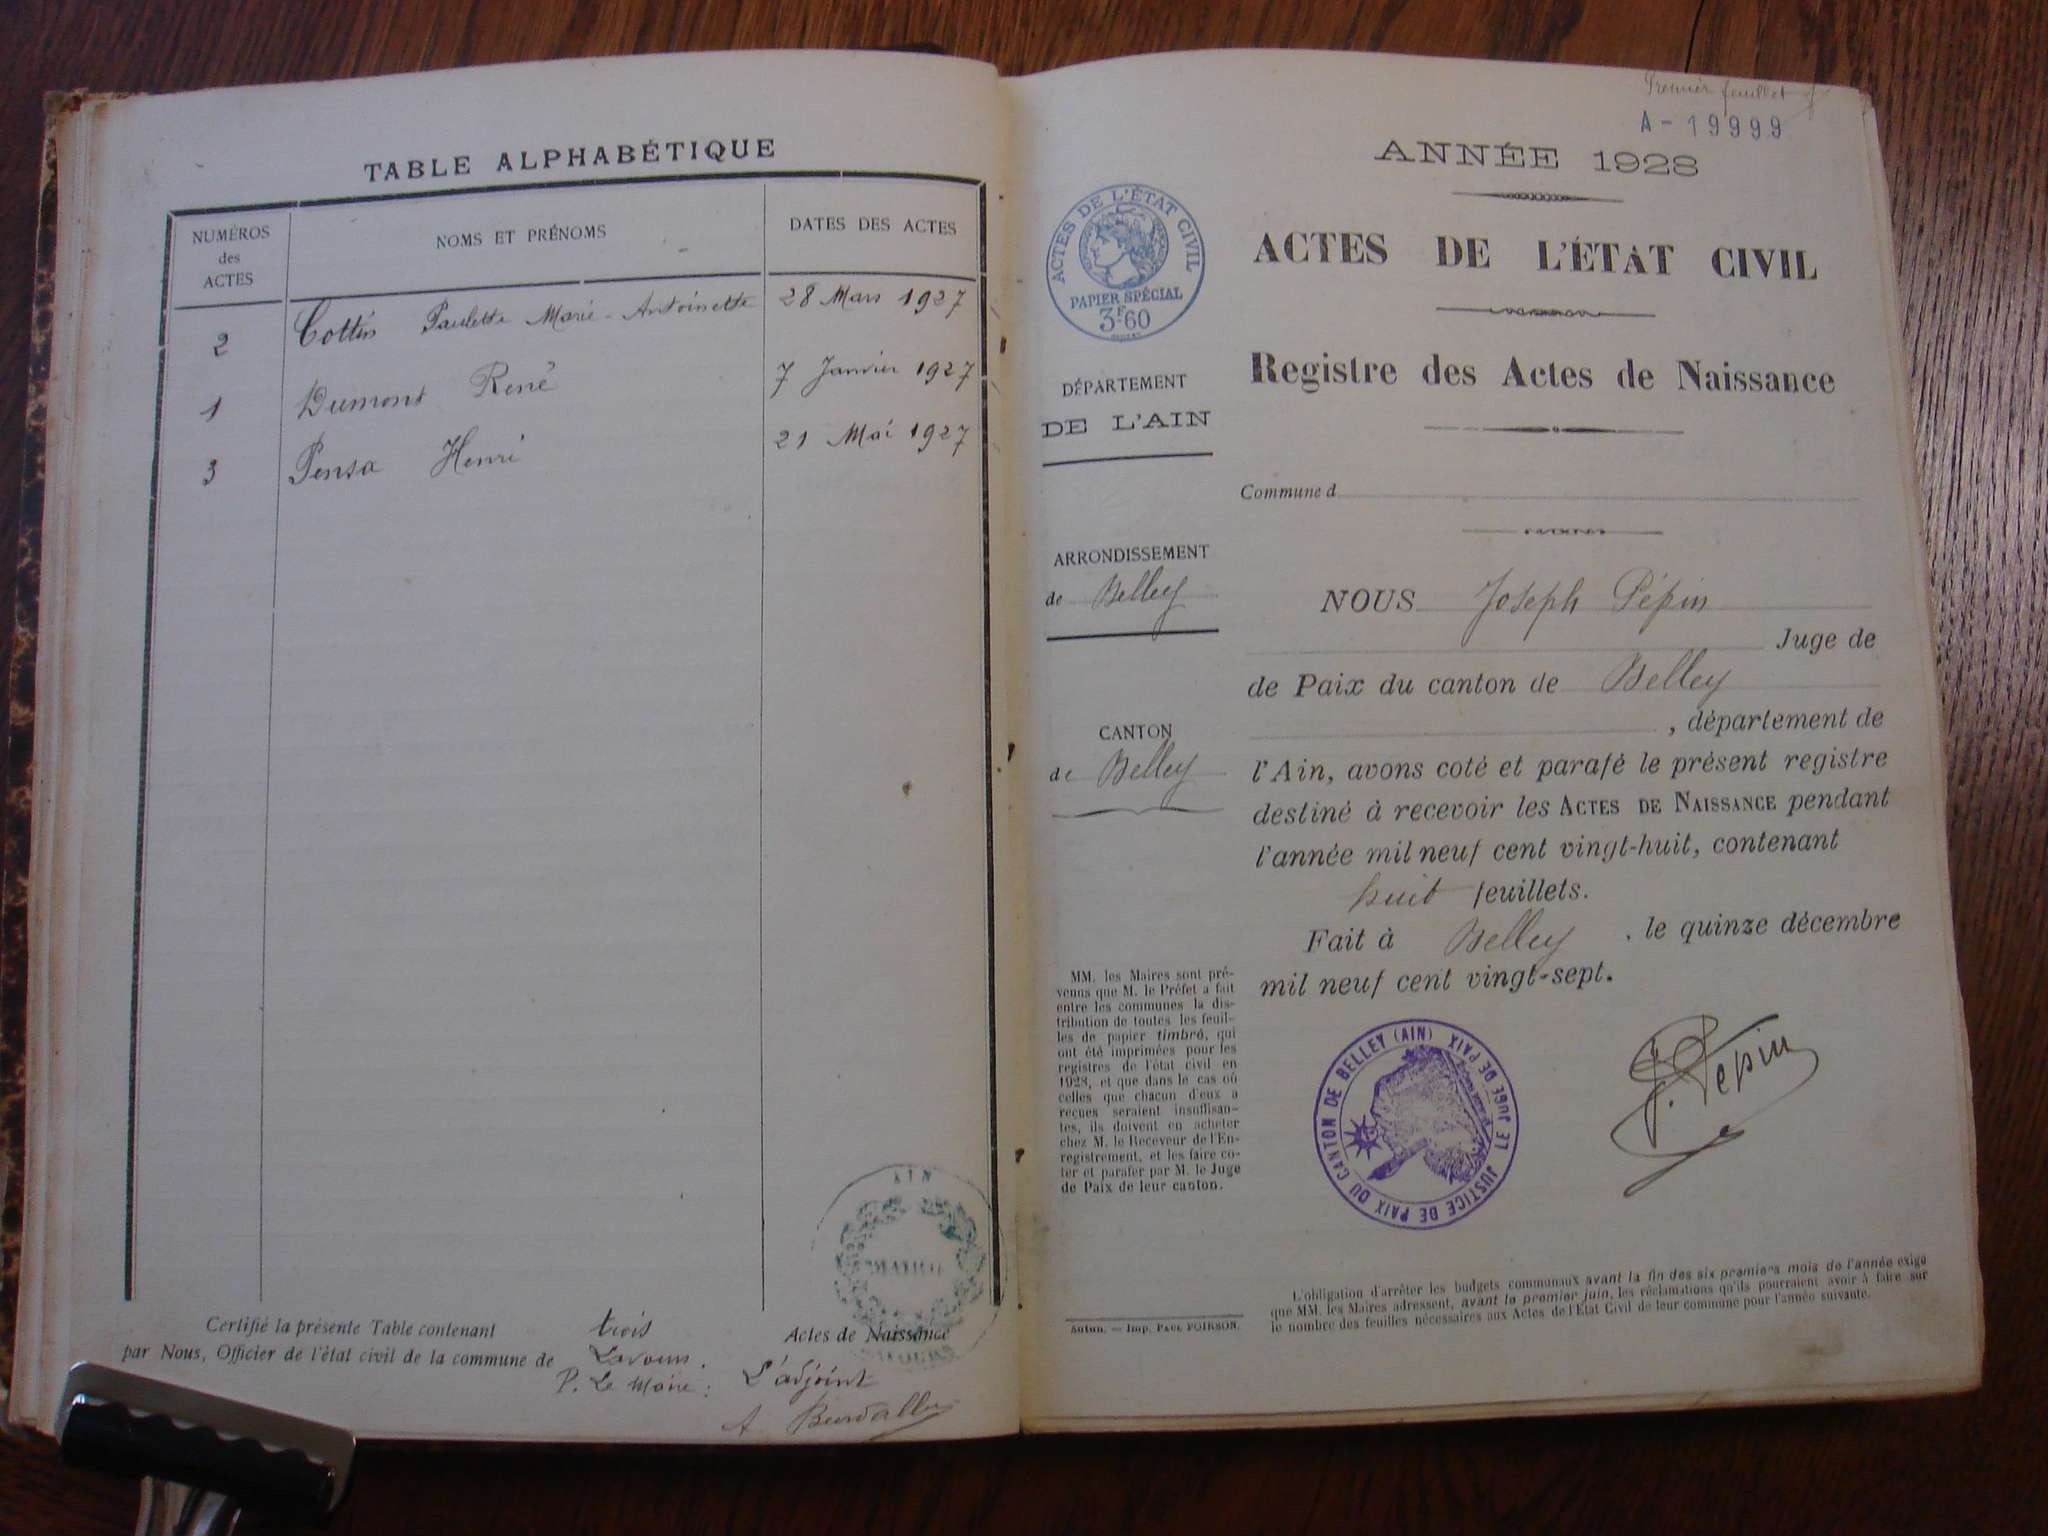 TABLE ALPHABÉTIQUE
NUMÉROS
des
ACTES
NOMS ET PRÉNOMS
DATES DES ACTES
2 Cottin Paulette Marie-Antoinette 28 Mars 1927
1 Dumont René 7 Janvier 1927
3 Pensa Henri 21 Mai 1927
AIN
MAIRIE
Certifié la présente Table contenant trois Actes de Naissance
par Nous, Officier de l'état civil de la commune de Lavours.
P. Le Maire : L'adjoint
A
Premier feuillet
A - 19999
ANNÉE 1928
ACTES DE L'ÉTAT CIVIL
PAPIER SPÉCIAL
3F60
ACTES DE L'ÉTAT CIVIL
Registre des Actes de Naissance
DÉPARTEMENT
DE L'AIN
Commune d
ARRONDISSEMENT
de Belley
CANTON
de Belley
NOUS Joseph Pépin
Juge de
de Paix du canton de Belley
, département de
l'Ain, avons coté et parafé le présent registre
destiné à recevoir les ACTES DE NAISSANCE pendant
l'année mil neuf cent vingt-huit, contenant
huit feuillets.
Fait à Belley , le quinze décembre
mil neuf cent vingt-sept.
MM. les Maires sont pré-
venus que M. le Préfet a fait
entre les communes la dis-
tribution de toutes les feuil-
les de papier timbré, qui
ont été imprimées pour les
registres de l'état civil en
1928, et que dans le cas où
celles que chacun d'eux a
reçues seraient insuffisan-
tes, ils doivent en acheter
chez M. le Receveur de l'En-
registrement, et les faire co-
ter et parafer par M. le Juge
de Paix de leur canton.
JUSTICE DE PAIX DU CANTON DE BELLEY (AIN)
LE JUGE DE PAIX
J. Pépin
Autun. — Imp. PAUL POIRSON.
L'obligation d'arrêter les budgets communaux avant la fin des six premiers mois de l'année exige
que MM. les Maires adressent, avant le premier juin, les réclamations qu'ils pourraient avoir à faire sur
le nombre des feuilles nécessaires aux Actes de l'État Civil de leur commune pour l'année suivante.